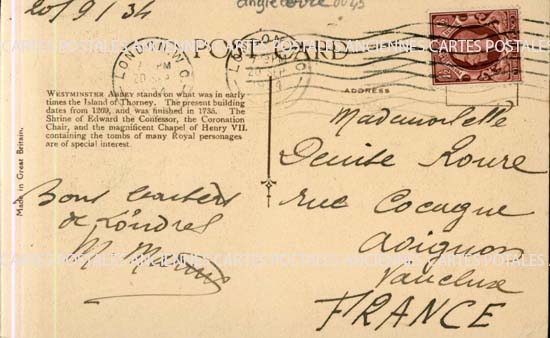 20/9/34
Angleterre
POST CARD
LONDON
PM
20 SEP
WESTMINSTER ABBEY stands on what was in early
times the Island of Thorney. The present building
dates from 1269, and was finished in 1735. The
Shrine of Edward the Confessor, the Coronation
Chair, and the magnificent Chapel of Henry VII.
containing the tombs of many Royal personages
are of special interest.
Made in Great Britain.
ADDRESS
Bons baisers
de Londres
M.
Mademoiselle
Denise Roure
rue Cocagne
Avignon
Vaucluse
FRANCE
CARTES POSTALES ANCIENNES CARTES POSTALES ANCIENNES CARTES POSTALES